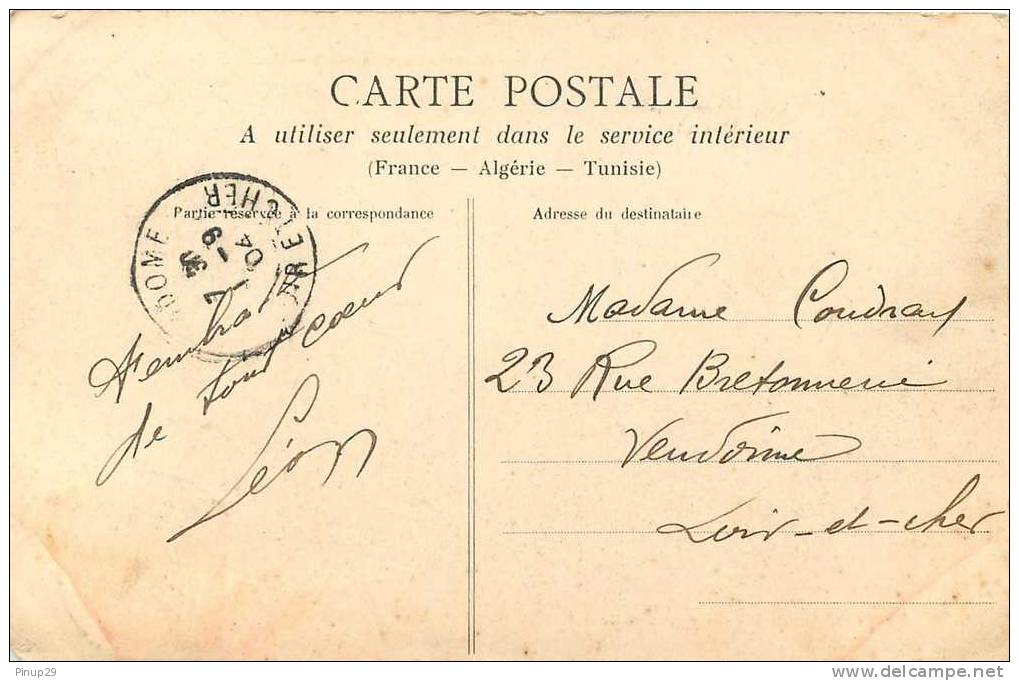 CARTE POSTALE
A utiliser seulement dans le service intérieur
(France — Algérie — Tunisie)
Partie réservée à la correspondance
DOME
R ET CHER
7
-6
04
t'embrasse
de tout coeur
Léon
Adresse du destinataire
Madame
23 Rue Bretonnerie
Vendôme
Loir-et-Cher
Pinup29
delcampe.net